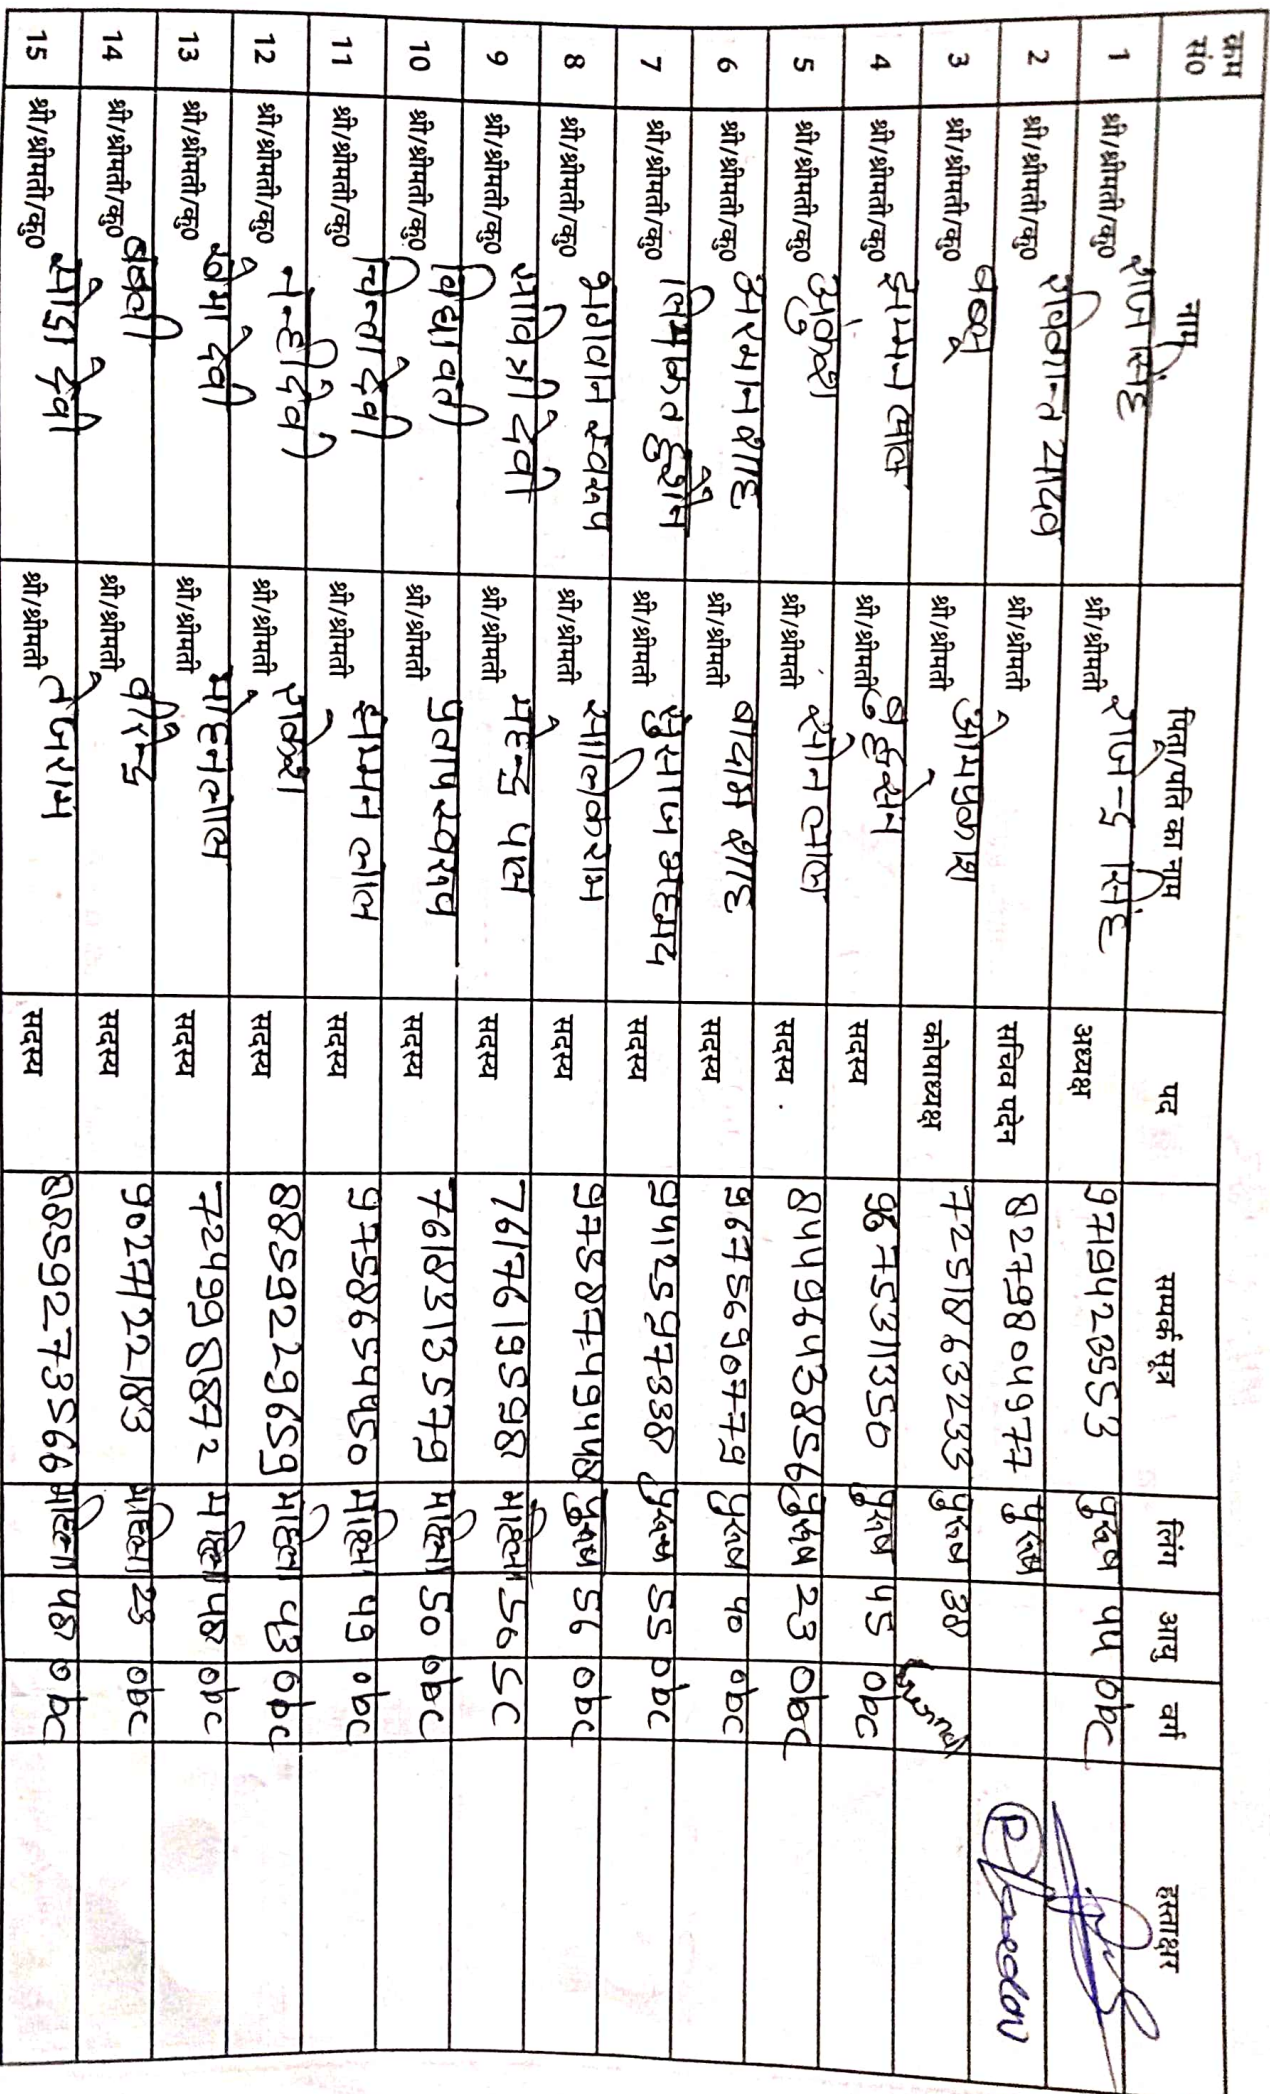 कम सं0 नाम पिता/पति का नाम पद सम्पर्क सूत्र लिंग आयु वर्ग हस्ताक्षर
1 श्री/श्रीमती/कु0 राज सिंह श्री/श्रीमती राजेन्द्र सिंह अध्यक्ष 9719423553 पुरूष 44 obc
2 श्री/श्रीमती/कु0 रविकान्त यादव श्री/श्रीमती सचिव पदेन 8279804977 पुरूष
3 श्री/श्रीमती/कु0 श्री/श्रीमती ओमप्रकाश कोषाध्यक्ष 7251863233 पुरूष 38
4 श्री/श्रीमती/कु0 झम्मन लाल श्री/श्रीमती सदस्य 9675311350 पुरूष 45 obc
5 श्री/श्रीमती/कु0 श्री/श्रीमती सोन लाल सदस्य 8449643856 पुरूष 23 obc
6 श्री/श्रीमती/कु0 अरमान शाह श्री/श्रीमती सदस्य 9675690779 पुरूष 40 obc
7 श्री/श्रीमती/कु0 लियाकत हुसैन श्री/श्रीमती सदस्य 9412597338 पुरूष 55 obc
8 श्री/श्रीमती/कु0 भगवान स्वरूप श्री/श्रीमती सालिकराम सदस्य 9758749448 पुरूष 56 obc
9 श्री/श्रीमती/कु0 सावित्री देवी श्री/श्रीमती महेन्द्र पाल सदस्य 7617619598 महिला 50 SC
10 श्री/श्रीमती/कु0 विद्यावती श्री/श्रीमती प्रताप स्वरूप सदस्य 7618313579 महिला 50 obc
11 श्री/श्रीमती/कु0 चिन्ता देवी श्री/श्रीमती झम्मन लाल सदस्य 9758654450 महिला 49 obc
12 श्री/श्रीमती/कु0 नन्ही देवी श्री/श्रीमती राकेश सदस्य 8859229659 महिला 43 obc
13 श्री/श्रीमती/कु0 देवी श्री/श्रीमती मोहनलाल सदस्य 7249998872 महिला 48 obc
14 श्री/श्रीमती/कु0 श्री/श्रीमती वीरेन्द्र सदस्य 9027122183 महिला 23 obc
15 श्री/श्रीमती/कु0 देवी श्री/श्रीमती तेजराम सदस्य 8859273566 महिला 48 obc